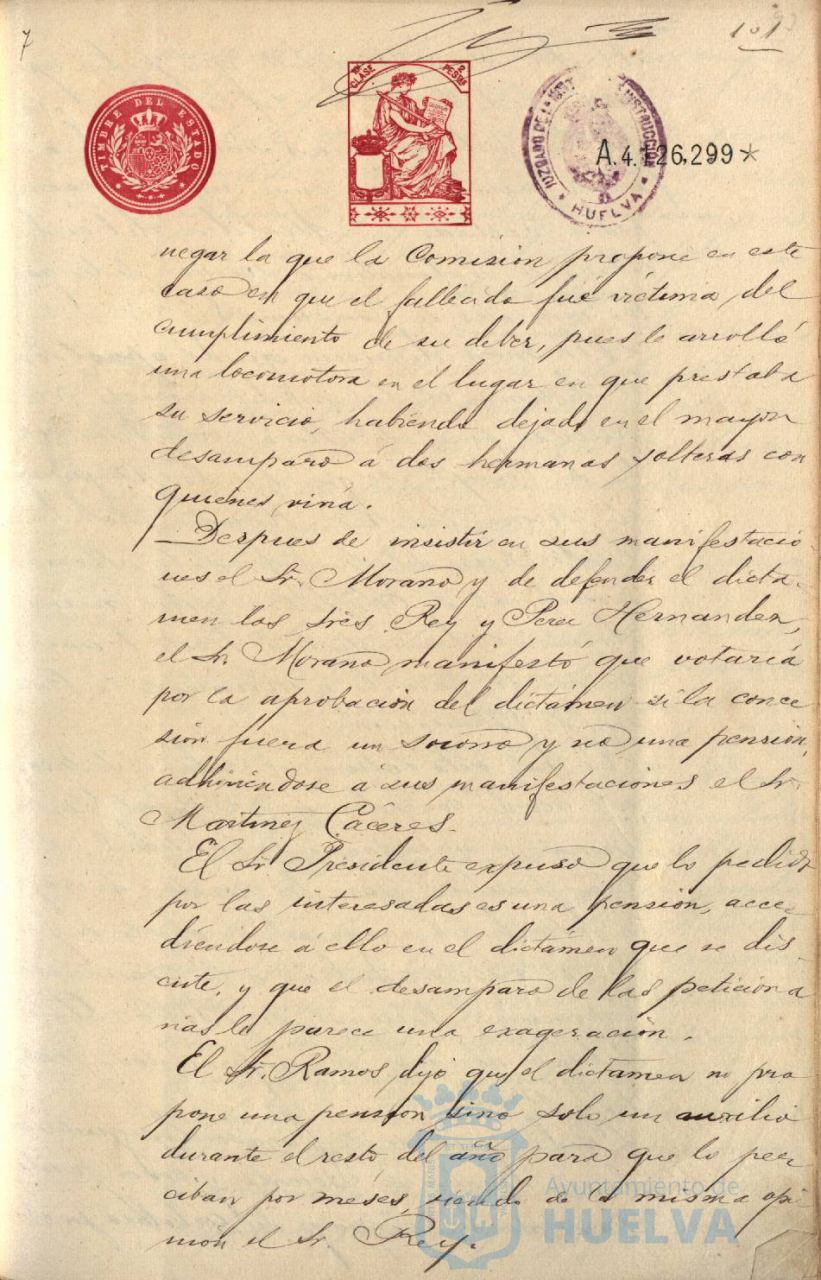 7
101
TIMBRE DEL ESTADO
CLASE
2 PESTAS
JUZGADO DE INSTRUCCION
HUELVA
A.4.126.299*
negar la que la Comision propone en este
caso en que el fallecido fué víctima, del
cumplimiento de su deber, pues le arrolló
una locomotora en el lugar en que prestaba
su servicio, habiendo dejado en el mayor
desamparo á dos hermanas solteras con
quienes vivia.
Despues de insistir en sus manifestacio
nes el Sr. Morano y de defender el dicta-
men los Sres Rey y Perez Hernandez,
el Sr. Morano manifestó que votaria
por la aprobacion del dictámen si la conce
sión fuera un socorro y no una pension,
adhiriéndose á sus manifestaciones el Sr.
Martinez Cáceres.
El Sr. Presidente expuso que lo pedido
por las interesadas es una pension, acce-
diéndose á ello en el dictámen que se dis-
cute, y que el desamparo de las peticiona
rias le parece una exageracion.
El Sr. Ramos dijo que el dictamen no pro
pone una pension, sino solo un auxilio
durante el resto del año para que lo per
ciban por meses, siendo de la misma opi
nion el Sr. Rey.
Ayuntamiento de
HUELVA